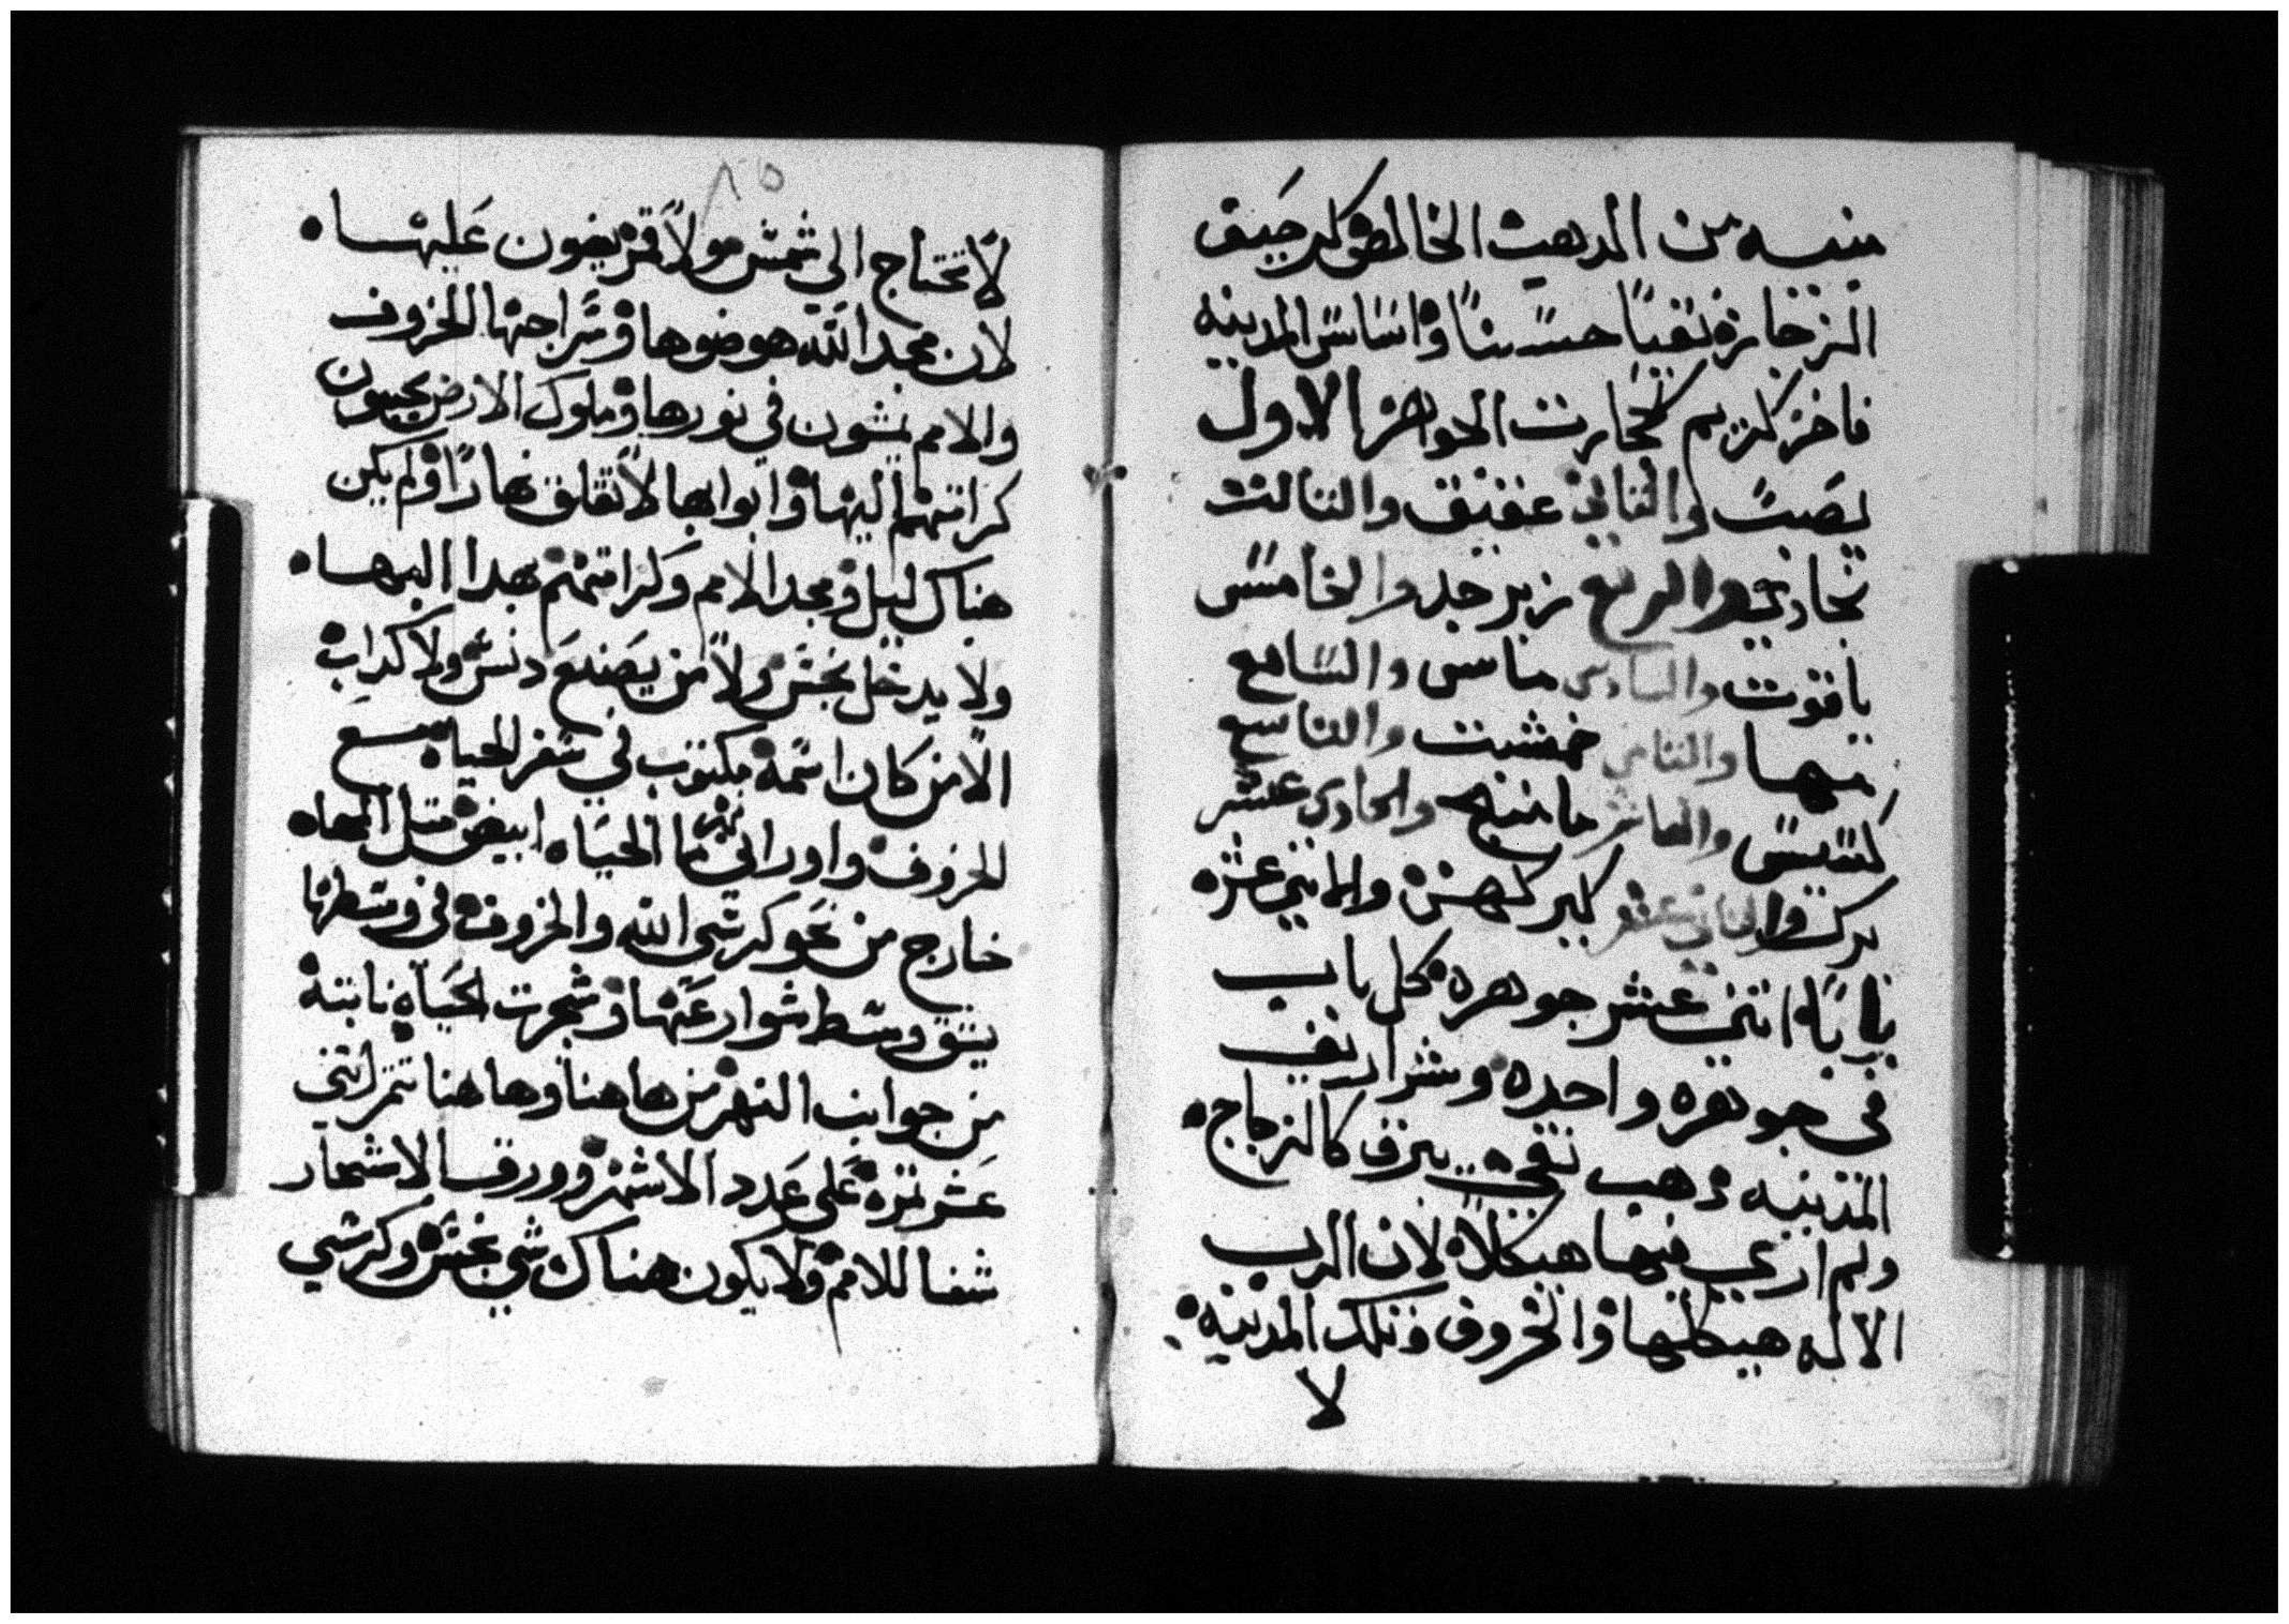 مبنيه من الدهب الخالص كرحيق
الزجاج نقيًا حسنًا واساس المدينه
فاخر كريم كحجارت الجواهر الاول
يصبت والثاني عقيق والتالت
والربع زبرجد والخامس
ياقوت والسادس ماسى والسابع
مها والثامن خمشت والتاسع
والعاشر والحادي عشر
والثاني عشر والاتني عشره
بابًا اتني عشر جوهره كل باب
في جوهره واحده وشراريف
المدينه دهب نقي يبرق كالزجاج
ولم اري فيها هيكلاً لان الرب
الاله هيكلها والخروف وتلك المدينه
لا
٨٥
لا تحتاج الي شمس ولا قمر يضون عليها
لان مجد الله هو ضوها وسراجها الخروف
والامم يمشون في نورها وملوك الارض يجيبون
كرامتهم اليها وابوابها لا تغلق نهارًا ولم يكن
هناك ليل ومجد الامم وكرامتهم بهدا البها
ولا يدخل نجس ولا من يصنع دنس ولا كداب
الا من كان اسمه مكتوب في سفر الحياه مع
الخروف واوراني نهر ما الحياه ابيض متل المهاه
خارج من نحو كرسي الله والخروف في وسطها
يشق وسط شوارعها وشجرت الحياه نابته
من جوانب النهر من هاهنا وهاهنا تتمر اتني
عشر تمره علي عدد الاشهر وورق الاشجار
شفا للامم ولا يكون هناك شي نجس وكرسي